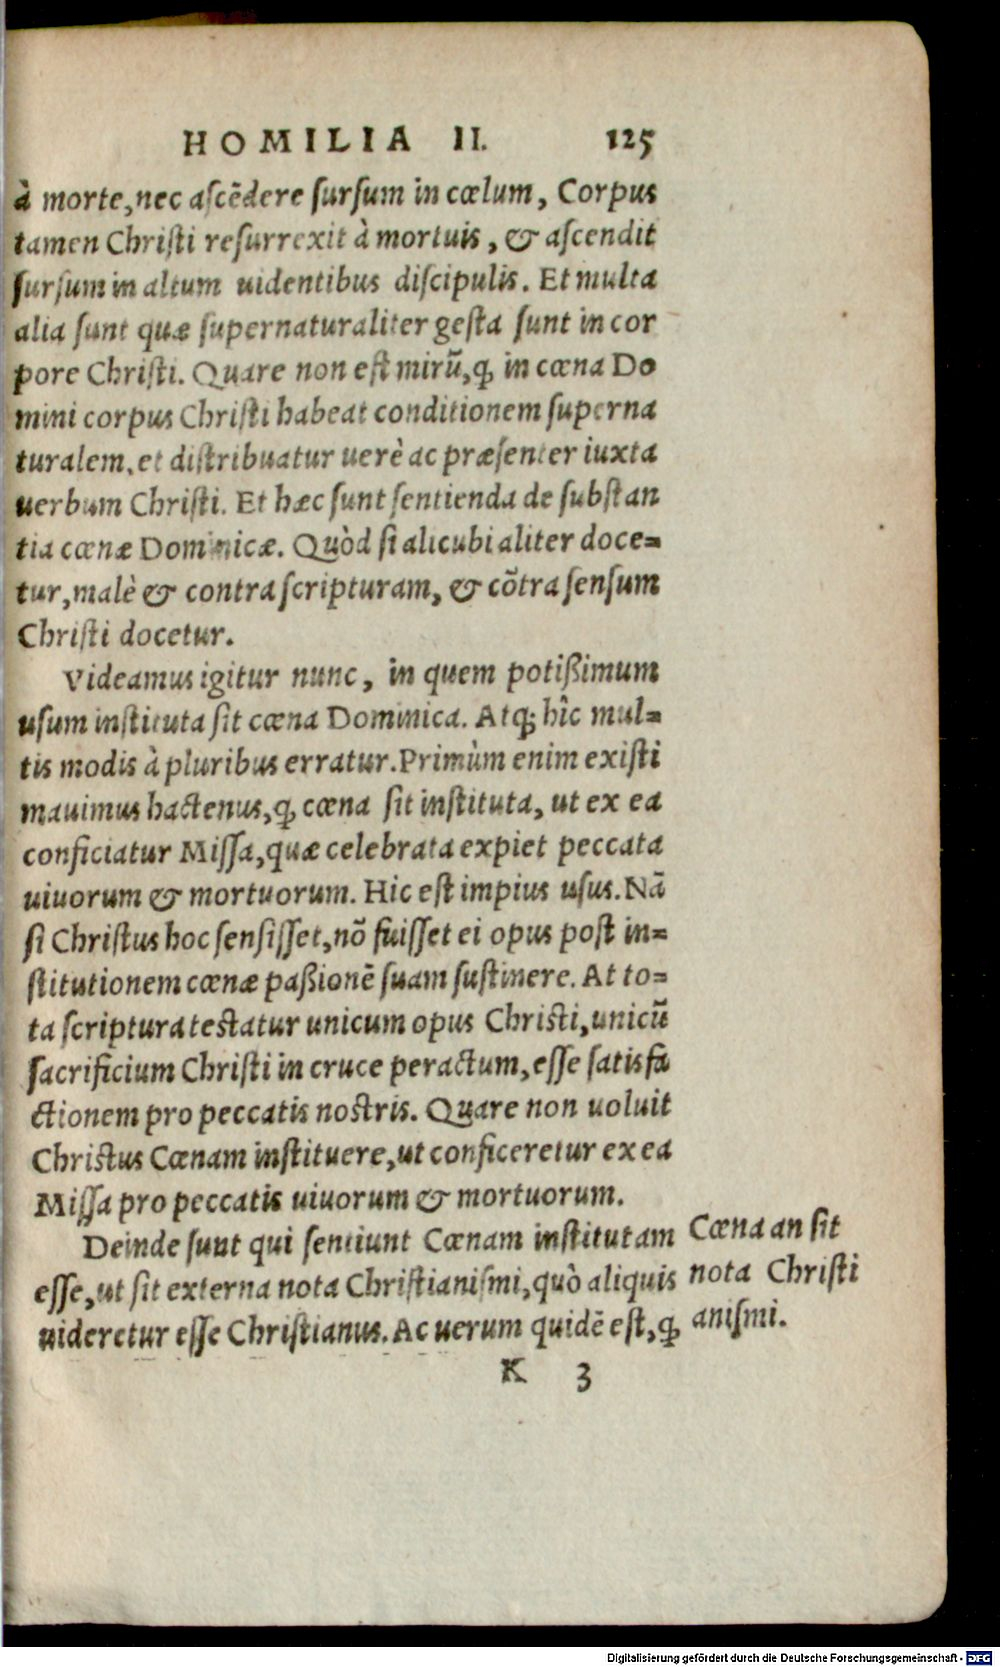 HOMILIA II. 125
à morte, nec ascēdere sursum in cœlum, Corpus
tamen Christi resurrexit à mortuis, & ascendit
sursum in altum uidentibus discipulis. Et multa
alia sunt quæ supernaturaliter gesta sunt in cor
pore Christi. Quare non est mirū, ꝙ in cœna Do
mini corpus Christi habeat conditionem superna
turalem, et distribuatur uerè ac præsenter iuxta
uerbum Christi. Et hæc sunt sentienda de substan
tia cœnæ Dominicæ. Quòd si alicubi aliter doce=
tur, malè & contra scripturam, & cōtra sensum
Christi docetur.
Videamus igitur nunc, in quem potißimum
usum instituta sit cœna Dominica. Atq; hîc mul=
tis modis à pluribus erratur. Primùm enim existi
mauimus hactenus, ꝙ cœna sit instituta, ut ex ea
conficiatur Missa, quæ celebrata expiet peccata
uiuorum & mortuorum. Hic est impius usus. Nā
si Christus hoc sensisset, nō fuisset ei opus post in=
stitutionem cœnæ paßionē suam sustinere. At to=
ta scriptura testatur unicum opus Christi, unicū
sacrificium Christi in cruce peractum, esse satisfa
ctionem pro peccatis nostris. Quare non uoluit
Christus Cœnam instituere, ut conficeretur ex ea
Missa pro peccatis uiuorum & mortuorum.
Deinde sunt qui sentiunt Cœnam institutam
esse, ut sit externa nota Christianismi, quò aliquis
uideretur esse Christianus. Ac uerum quidē est, ꝙ
Cœna an sit
nota Christi
anismi.
K 3
Digitalisierung gefördert durch die Deutsche Forschungsgemeinschaft - DFG